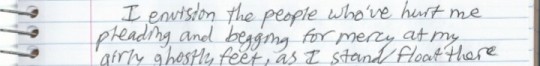 I envision the people who've hurt me
pleading and begging for mercy at my
airly ghostly feet, as I stand/float there